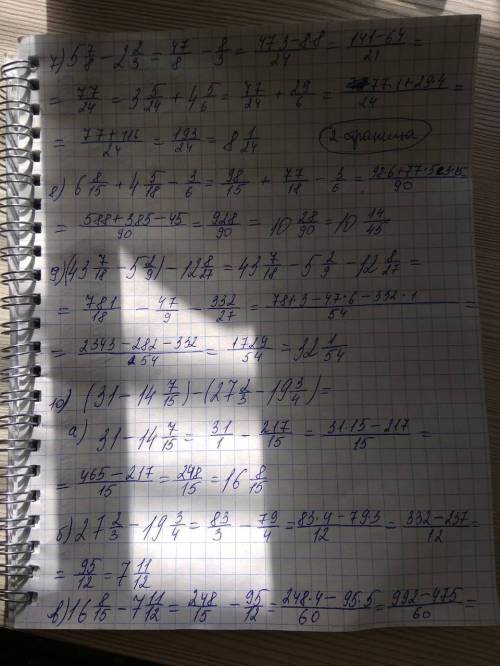 7) 5 7/8 - 2 2/3 = 47/8 - 8/3 = 47·3-8·8/24 = 141-64/24 =
= 77/24 = 3 5/24 + 4 5/6 = 77/24 + 29/6 = 77·1+29·4/24 =
= 77+116/24 = 193/24 = 8 1/24 2 страница
8) 6 8/15 + 4 5/18 - 3/6 = 98/15 + 77/18 - 3/6 = 98·6+77·5-3·15/90
= 588+385-45/90 = 928/90 = 10 28/90 = 10 14/45
9) (43 7/18 - 5 2/9) - 12 8/27 = 43 7/18 - 5 2/9 - 12 8/27 =
= 781/18 - 47/9 - 332/27 = 781·3-47·6-332·1/54 =
= 2343-282-332/54 = 1729/54 = 32 1/54
10) (31 - 14 7/15) - (27 2/3 - 19 3/4) =
а) 31 - 14 7/15 = 31/1 - 217/15 = 31·15-217/15 =
= 465-217/15 = 248/15 = 16 8/15
б) 27 2/3 - 19 3/4 = 83/3 - 79/4 = 83·4-79·3/12 = 332-237/12 =
= 95/12 = 7 11/12
в) 16 8/15 - 7 11/12 = 248/15 - 95/12 = 248·4-95·5/60 = 992-475/60 =